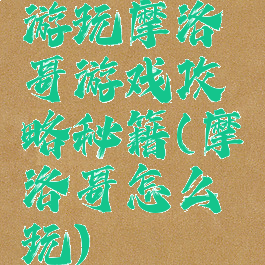 游玩摩洛
哥游戏攻
略秘籍(摩
洛哥怎么
玩)